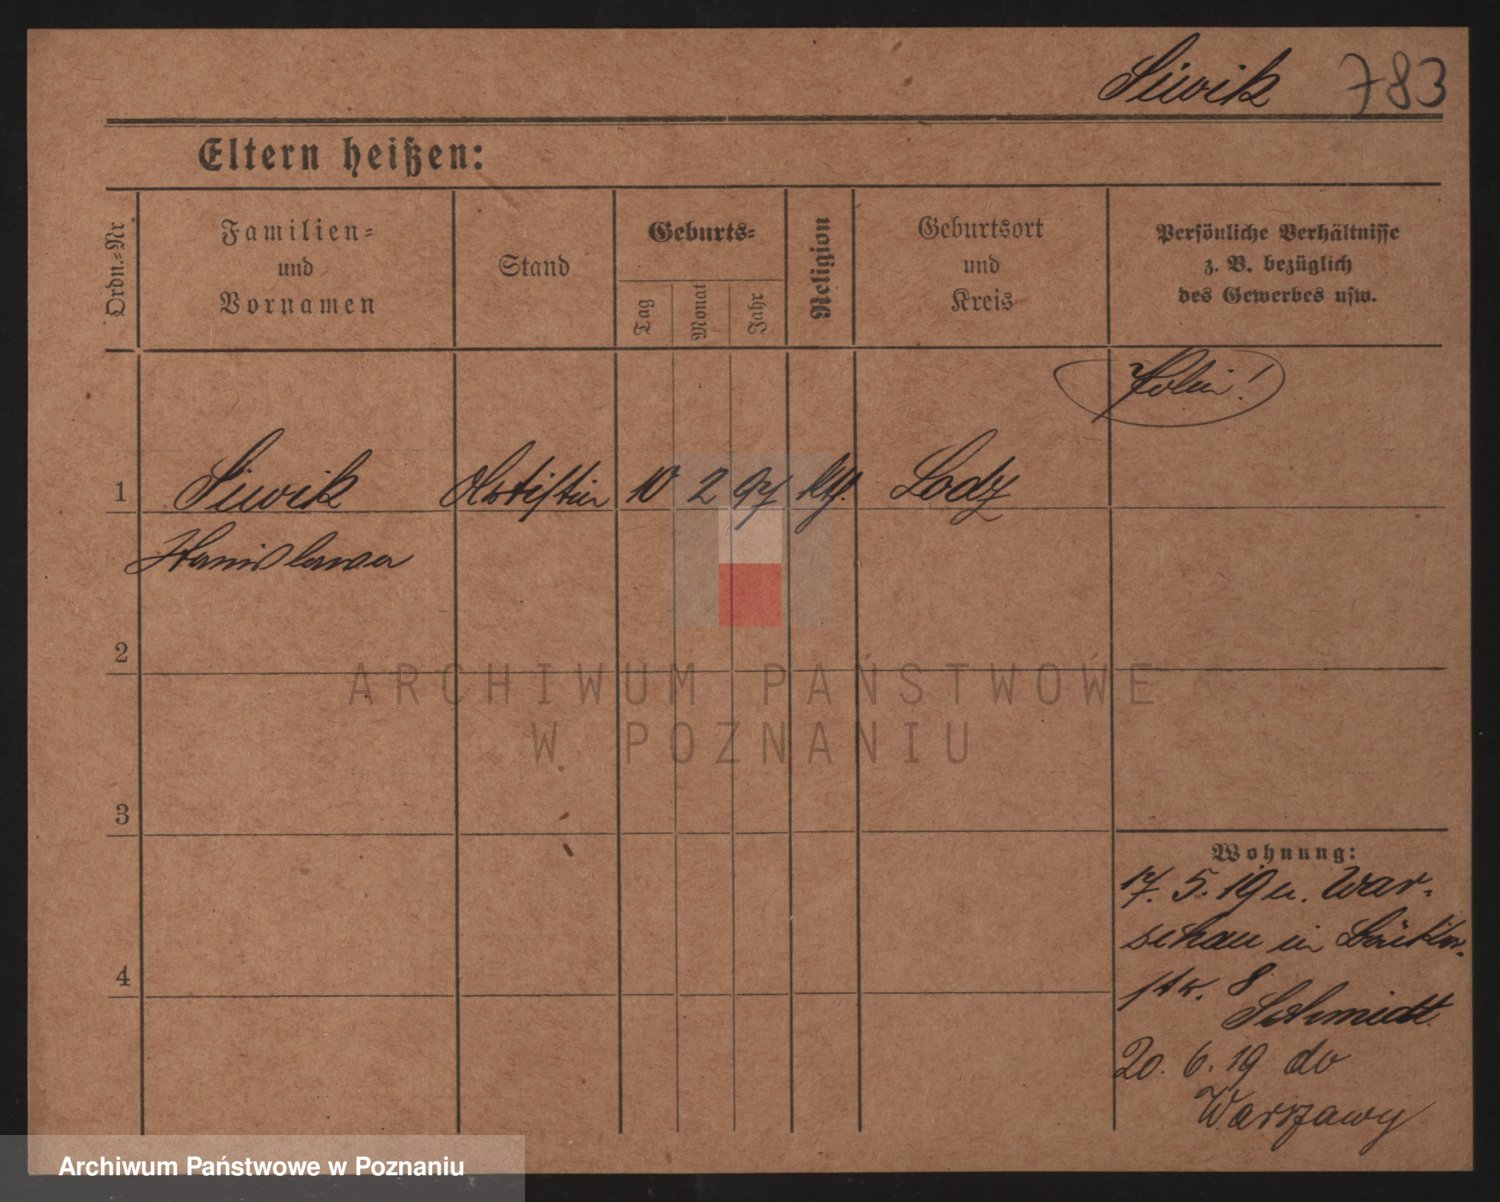 Siwik 783
Eltern heißen:
Ordn.-Nr
Familien-
und
Vornamen
Stand
Geburts-
Tag
Monat
Jahr
Religion
Geburtsort
und
Kreis
Persönliche Verhältnisse
z. B. bezüglich
des Gewerbes usw.
Polin!
1 Siwik Artistin 10 2 97 kth. Lodz
Stanislawa
2
ARCHIWUM PAŃSTWOWE
W POZNANIU
3
Wohnung:
17. 5. 19 u. War-
schau in
str. 8
Schmidt
4
20. 6. 19 do
Warszawy
Archiwum Państwowe w Poznaniu